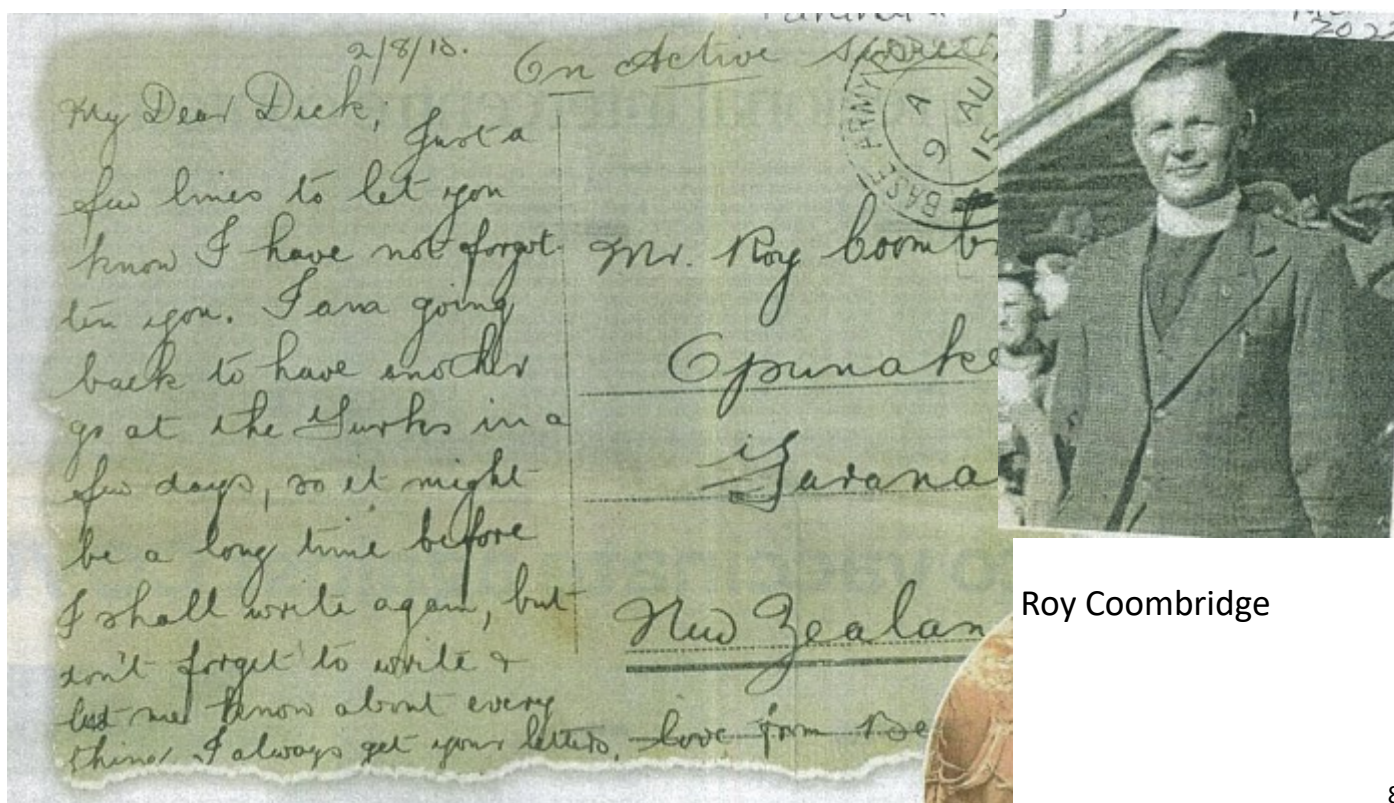 2/8/15.
On Active
My Dear Dick;
Just a
few lines to let you
know I have not forgot-
ten you. I am going
back to have another
go at the Turks in a
few days, so it might
be a long time before
I shall write again, but
don't forget to write &
let me know about every
thing I always get your letters. love from
BASE ARMY
9 A
AU
15
Mr. Roy Coomb
Opunake
Tarana
New Zealan
2022
Roy Coombridge
8